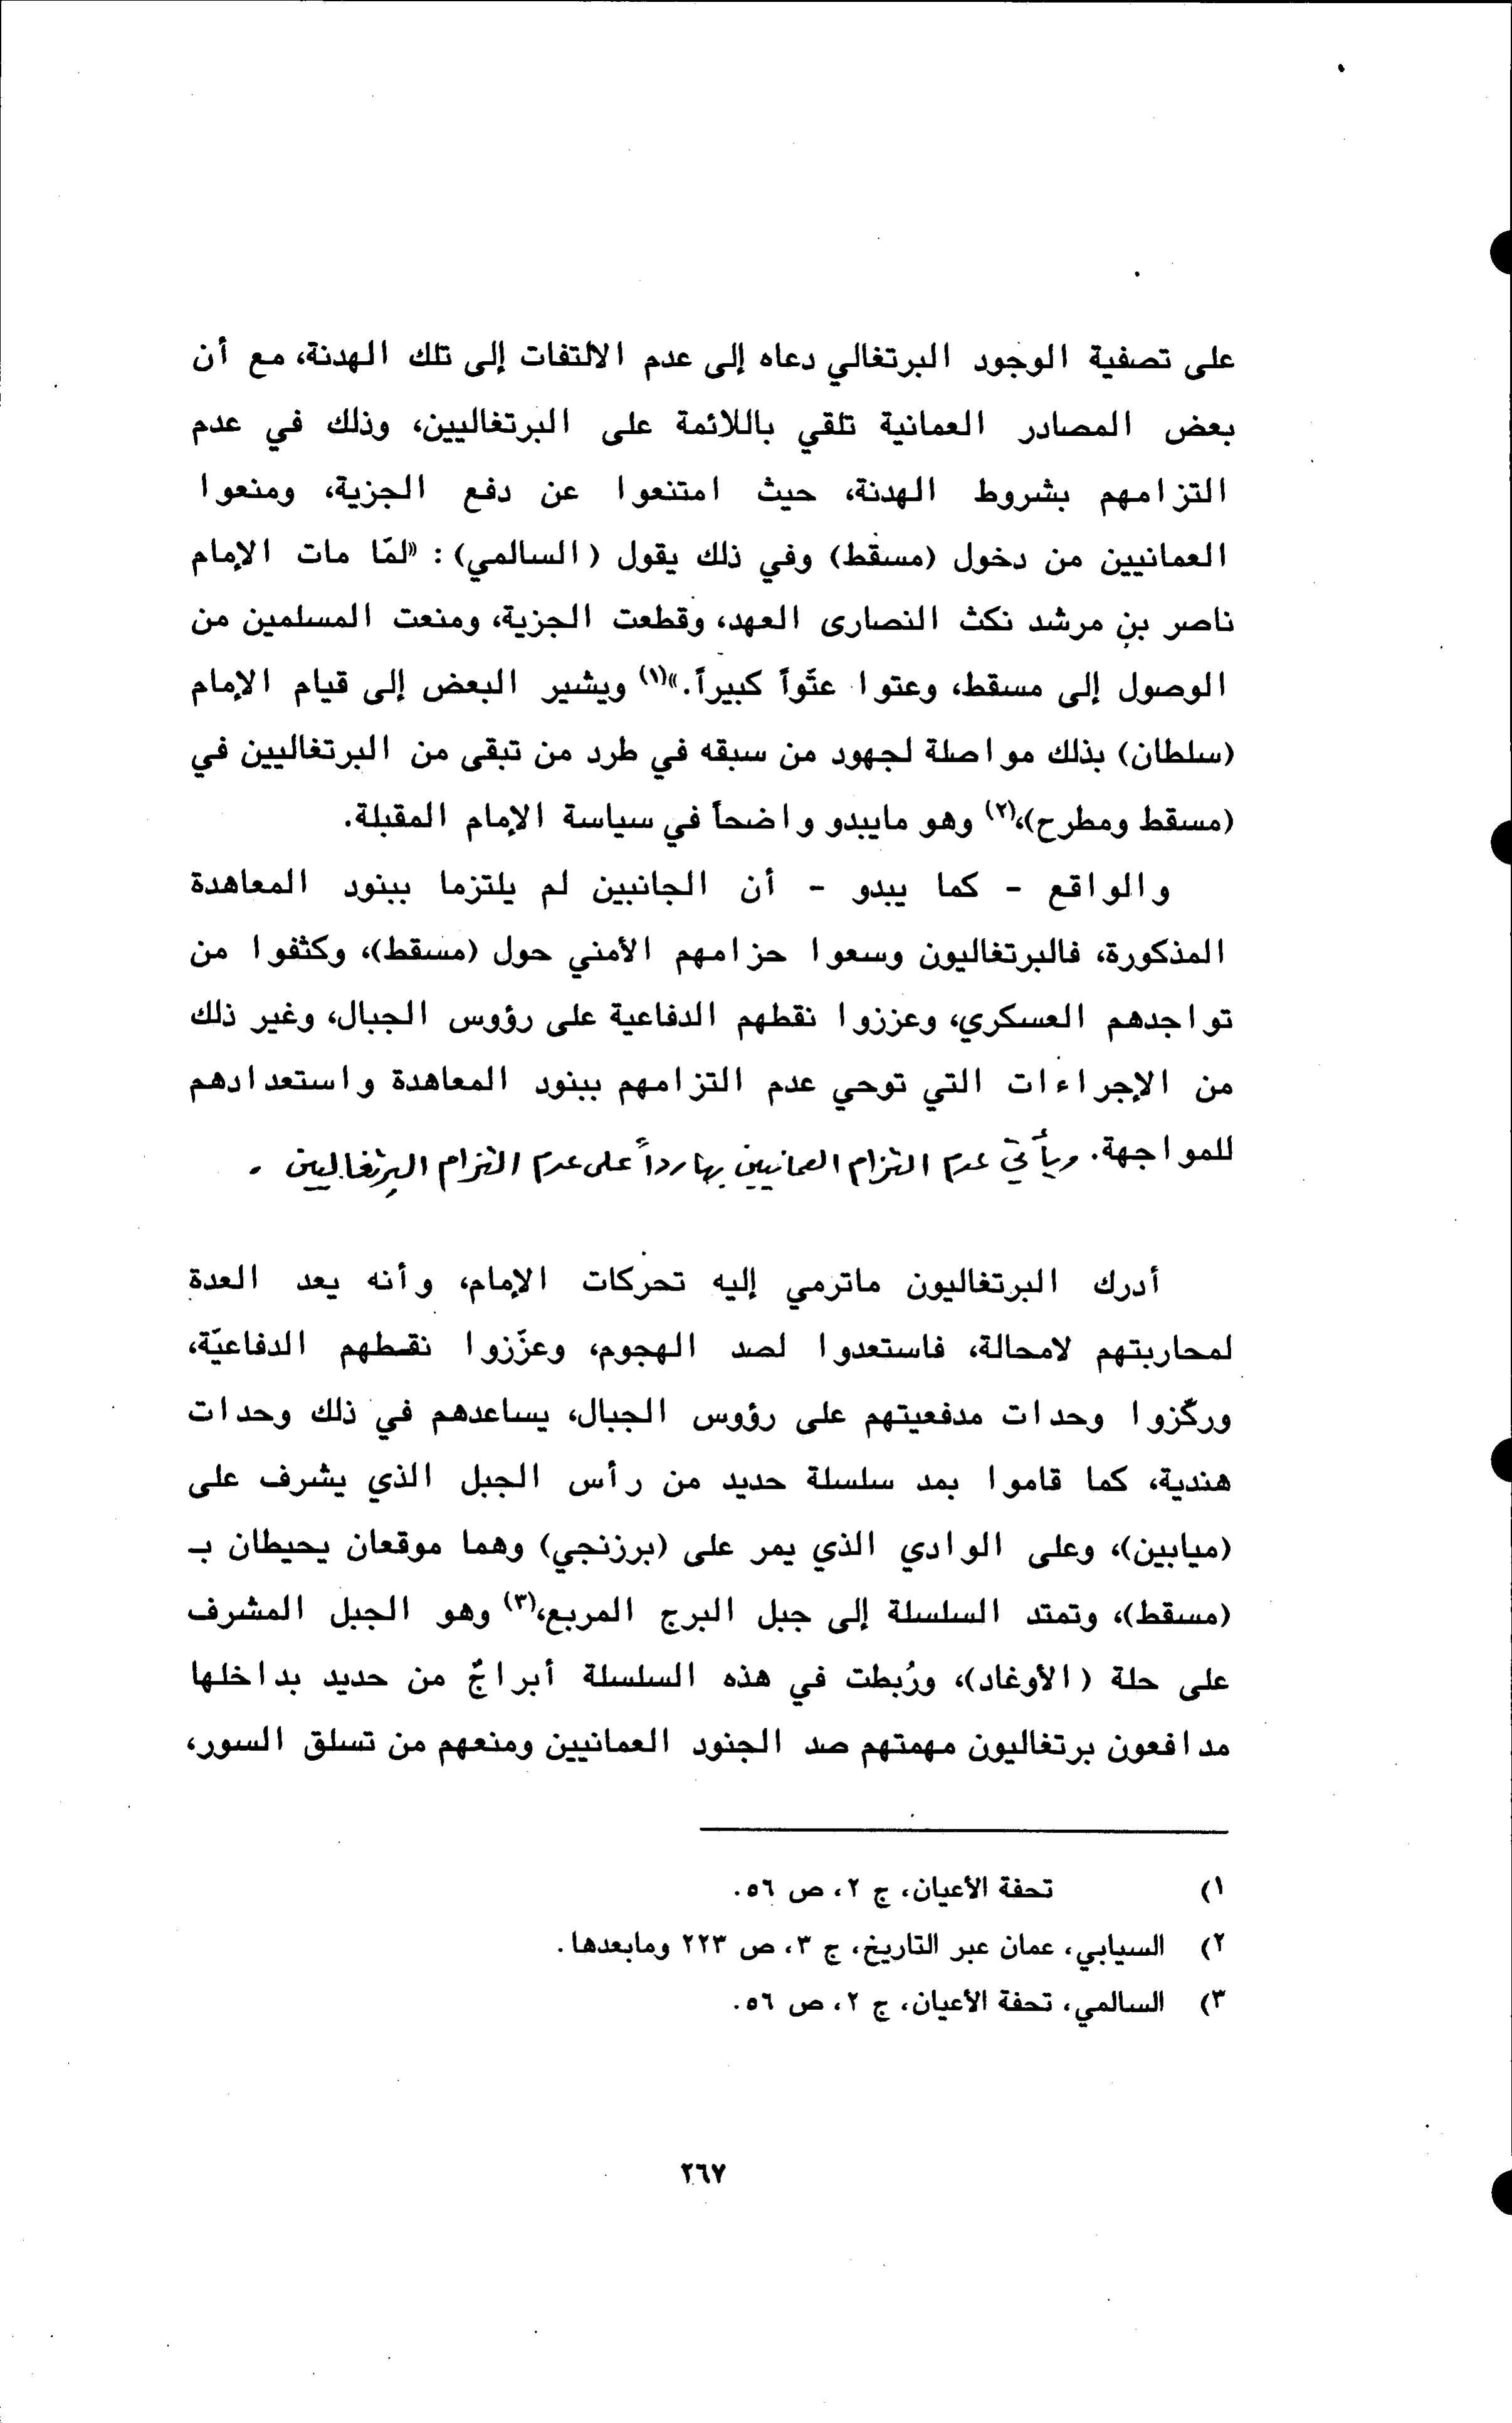 على تصفية الوجود البرتغالي دعاه إلى عدم الالتفات إلى تلك الهدنة، مع أن
بعض المصادر العمانية تلقي باللائمة على البرتغاليين، وذلك في عدم
التزامهم بشروط الهدنة، حيث امتنعوا عن دفع الجزية، ومنعوا
العمانيين من دخول (مسقط) وفي ذلك يقول (السالمي): «لمّا مات الإمام
ناصر بن مرشد نكث النصارى العهد، وقطعت الجزية، ومنعت المسلمين من
الوصول إلى مسقط، وعتوا عتّواً كبيراً.»(١) ويشير البعض إلى قيام الإمام
(سلطان) بذلك مواصلة لجهود من سبقه في طرد من تبقى من البرتغاليين في
(مسقط ومطرح)،(٢) وهو مايبدو واضحاً في سياسة الإمام المقبلة.
والواقع - كما يبدو - أن الجانبين لم يلتزما ببنود المعاهدة
المذكورة، فالبرتغاليون وسعوا حزامهم الأمني حول (مسقط)، وكثفوا من
تواجدهم العسكري، وعززوا نقطهم الدفاعية على رؤوس الجبال، وغير ذلك
من الإجراءات التي توحي عدم التزامهم ببنود المعاهدة واستعدادهم
للمواجهة. ويأتي عدم التزام العمانيين بها رداً على عدم التزام البرتغاليين .
أدرك البرتغاليون ماترمي إليه تحركات الإمام، وأنه يعد العدة
لمحاربتهم لامحالة، فاستعدوا لصد الهجوم، وعزّزوا نقطهم الدفاعيّة،
وركّزوا وحدات مدفعيتهم على رؤوس الجبال، يساعدهم في ذلك وحدات
هندية، كما قاموا بمد سلسلة حديد من رأس الجبل الذي يشرف على
(ميابين)، وعلى الوادي الذي يمر على (برزنجي) وهما موقعان يحيطان بـ
(مسقط)، وتمتد السلسلة إلى جبل البرج المربع،(٣) وهو الجبل المشرف
على حلة (الأوغاد)، ورُبطت في هذه السلسلة أبراجٌ من حديد بداخلها
مدافعون برتغاليون مهمتهم صد الجنود العمانيين ومنعهم من تسلق السور،
١) تحفة الأعيان، ج ٢، ص ٥٦.
٢) السيابي، عمان عبر التاريخ، ج ٣، ص ٢٢٣ ومابعدها.
٣) السالمي، تحفة الأعيان، ج ٢، ص ٥٦.
٢٦٧